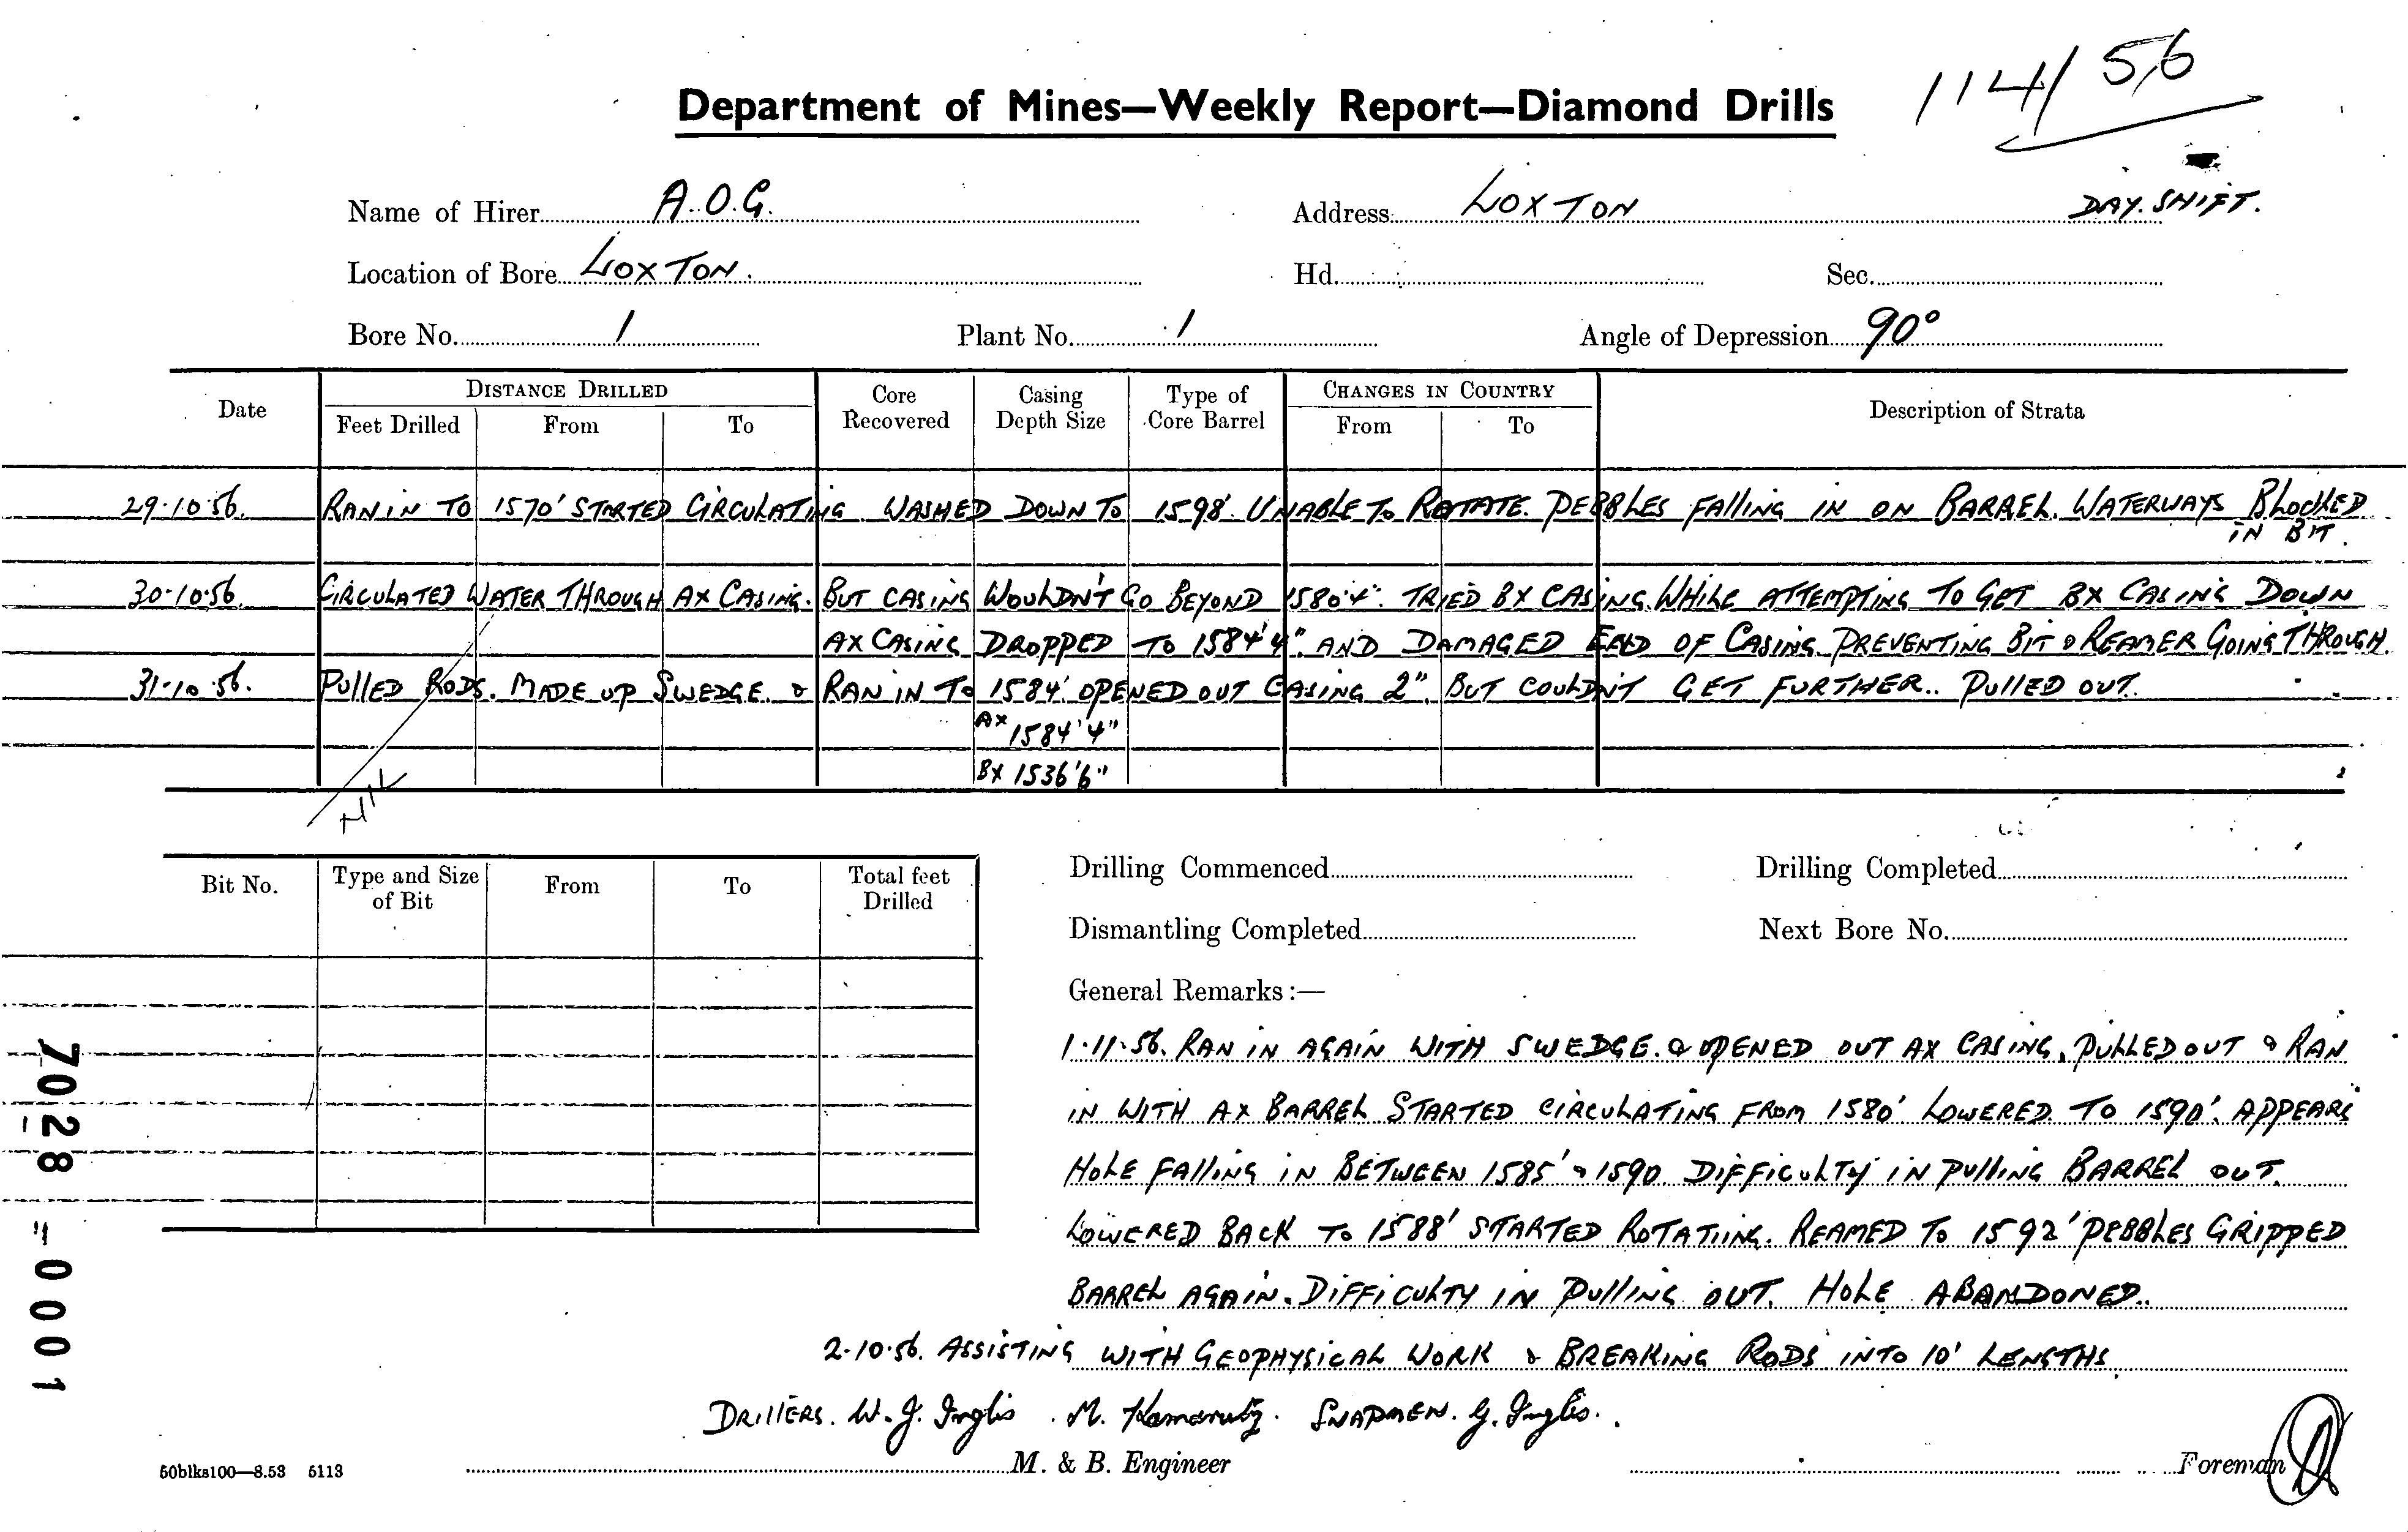 114/56
Department of Mines—Weekly Report—Diamond Drills
Name of Hirer A.O.G. Address LOXTON DAY. SHIFT.
Location of Bore LOXTON. Hd. Sec.
Bore No. 1 Plant No. 1 Angle of Depression 90°
Date DISTANCE DRILLED Core Recovered Casing Depth Size Type of Core Barrel CHANGES IN COUNTRY Description of Strata
Feet Drilled From To From To
29.10.56. RAN IN TO 1570' STARTED CIRCULATING WASHED DOWN TO 1598'. UNABLE TO ROTATE. PEBBLES FALLING IN ON BARREL. WATERWAYS BLOCKED
IN BIT.
30.10.56. CIRCULATED WATER THROUGH AX CASING. BUT CASING WOULDN'T GO BEYOND 1580'4". TRIED BX CASING. WHILE ATTEMPTING TO GET BX CASING DOWN
AX CASING DROPPED TO 1584'4" AND DAMAGED END OF CASING PREVENTING BIT & REAMER GOING THROUGH.
31.10.56. PULLED RODS. MADE UP SWEDGE. & RAN IN TO 1584'. OPENED OUT CASING 2". BUT COULDN'T GET FURTHER.. PULLED OUT.
AX 1584'4"
BX 1536'6"
NIL
Bit No. Type and Size of Bit From To Total feet Drilled
Drilling Commenced Drilling Completed
Dismantling Completed Next Bore No.
General Remarks:—
1.11.56. RAN IN AGAIN WITH SWEDGE. & OPENED OUT AX CASING. PULLED OUT & RAN
IN WITH AX BARREL STARTED CIRCULATING FROM 1580' LOWERED TO 1590'. APPEARS
HOLE FALLING IN BETWEEN 1585' & 1590. DIFFICULTY IN PULLING BARREL OUT.
LOWERED BACK TO 1588' STARTED ROTATIING. REAMED TO 1592' PEBBLES GRIPPED
BARREL AGAIN. DIFFICULTY IN PULLING OUT. HOLE ABANDONED..
2.10.56. ASSISTING WITH GEOPHYSICAL WORK & BREAKING RODS INTO 10' LENGTHS.
DRILLERS. W. J. Inglis. M. SNAPMEN. G. Inglis.
M. & B. Engineer Foreman
50blks100—8.53 5113
7028-0001